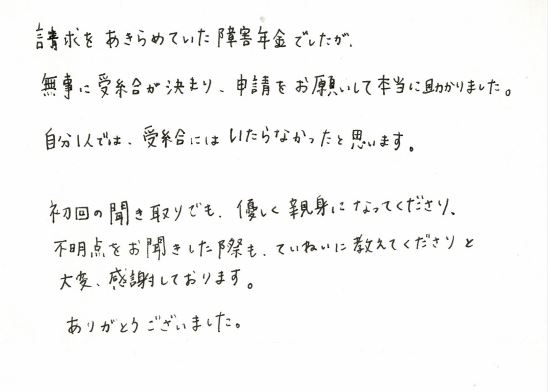 請求をあきらめていた障害年金でしたが、
無事に受給が決まり、申請をお願いして本当に助かりました。
自分1人では、受給にはいたらなかったと思います。
初回の聞き取りでも、優しく親身になってくださり、
不明点をお聞きした際も、ていねいに教えてくださりと
大変、感謝しております。
ありがとうございました。